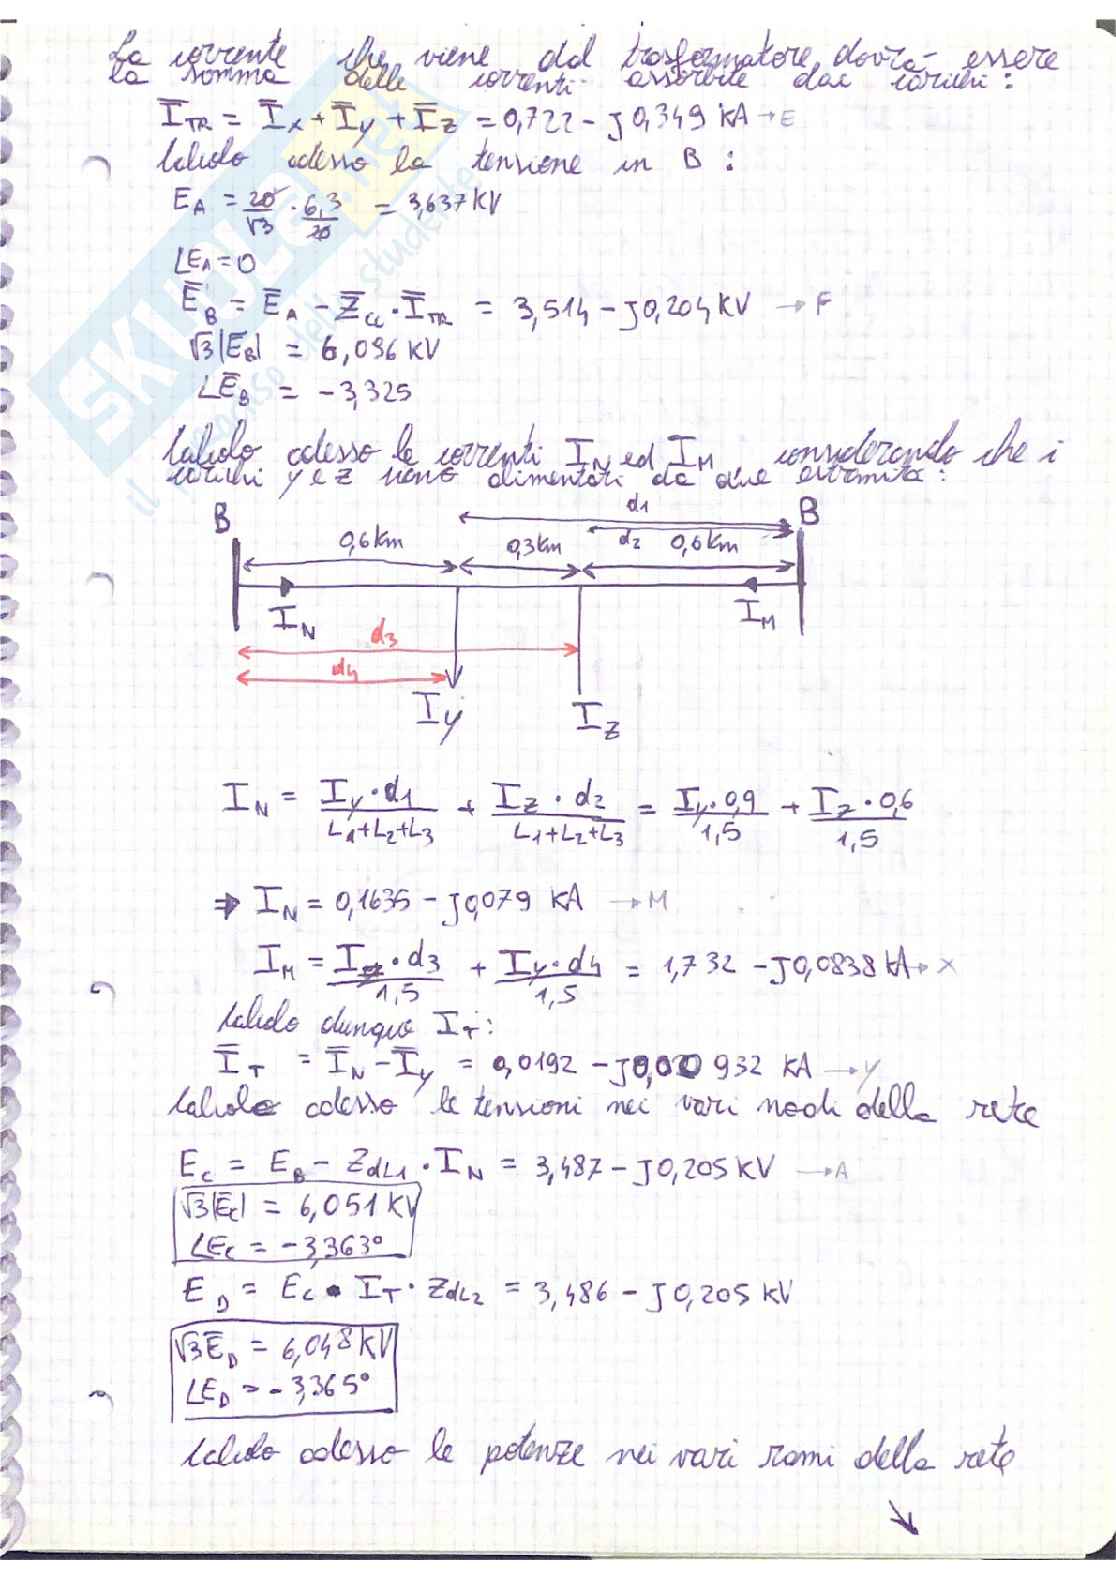 La corrente che viene dal trasformatore dovrà essere
la somma delle correnti assorbite dai carichi:
I̅TR = I̅x + I̅y + I̅z = 0,722 - J0,349 kA → E
Calcolo adesso la tensione in B :
EA = 20/√3 · 6,3/20 = 3,637 KV
∠EA = 0
E̅B = E̅A - Z̅cc · I̅TR = 3,514 - J0,204 KV → F
√3|EB| = 6,096 KV
∠E̅B = -3,325
Calcolo adesso le correnti IN ed IM considerando che i
carichi y e z siano alimentati da due estremità:
d1
B B
0,6 km 0,3 km d2 0,6 km
IN IM
d3
d4
Iy Iz
IN = Iy · d1 / L1+L2+L3 + Iz · d2 / L1+L2+L3 = Iy · 0,9 / 1,5 + Iz · 0,6 / 1,5
⇒ IN = 0,1635 - J0,079 KA → M
IM = Iz · d3 / 1,5 + Iy · d4 / 1,5 = 1,732 - J0,0838 kA → X
Calcolo dunque IT:
I̅T = I̅N - I̅y = 0,0192 - J0,00932 KA → Y
Calcolo adesso le tensioni nei vari nodi della rete
EC = EB - ZdL1 · IN = 3,487 - J0,205 KV → A
√3|EC| = 6,051 KV
∠EC = -3,363°
ED = EC - IT · ZdL2 = 3,486 - J0,205 KV
√3E̅D = 6,048 KV
∠ED = -3,365°
Calcolo adesso le potenze nei vari rami della rete
SKUOLA.net